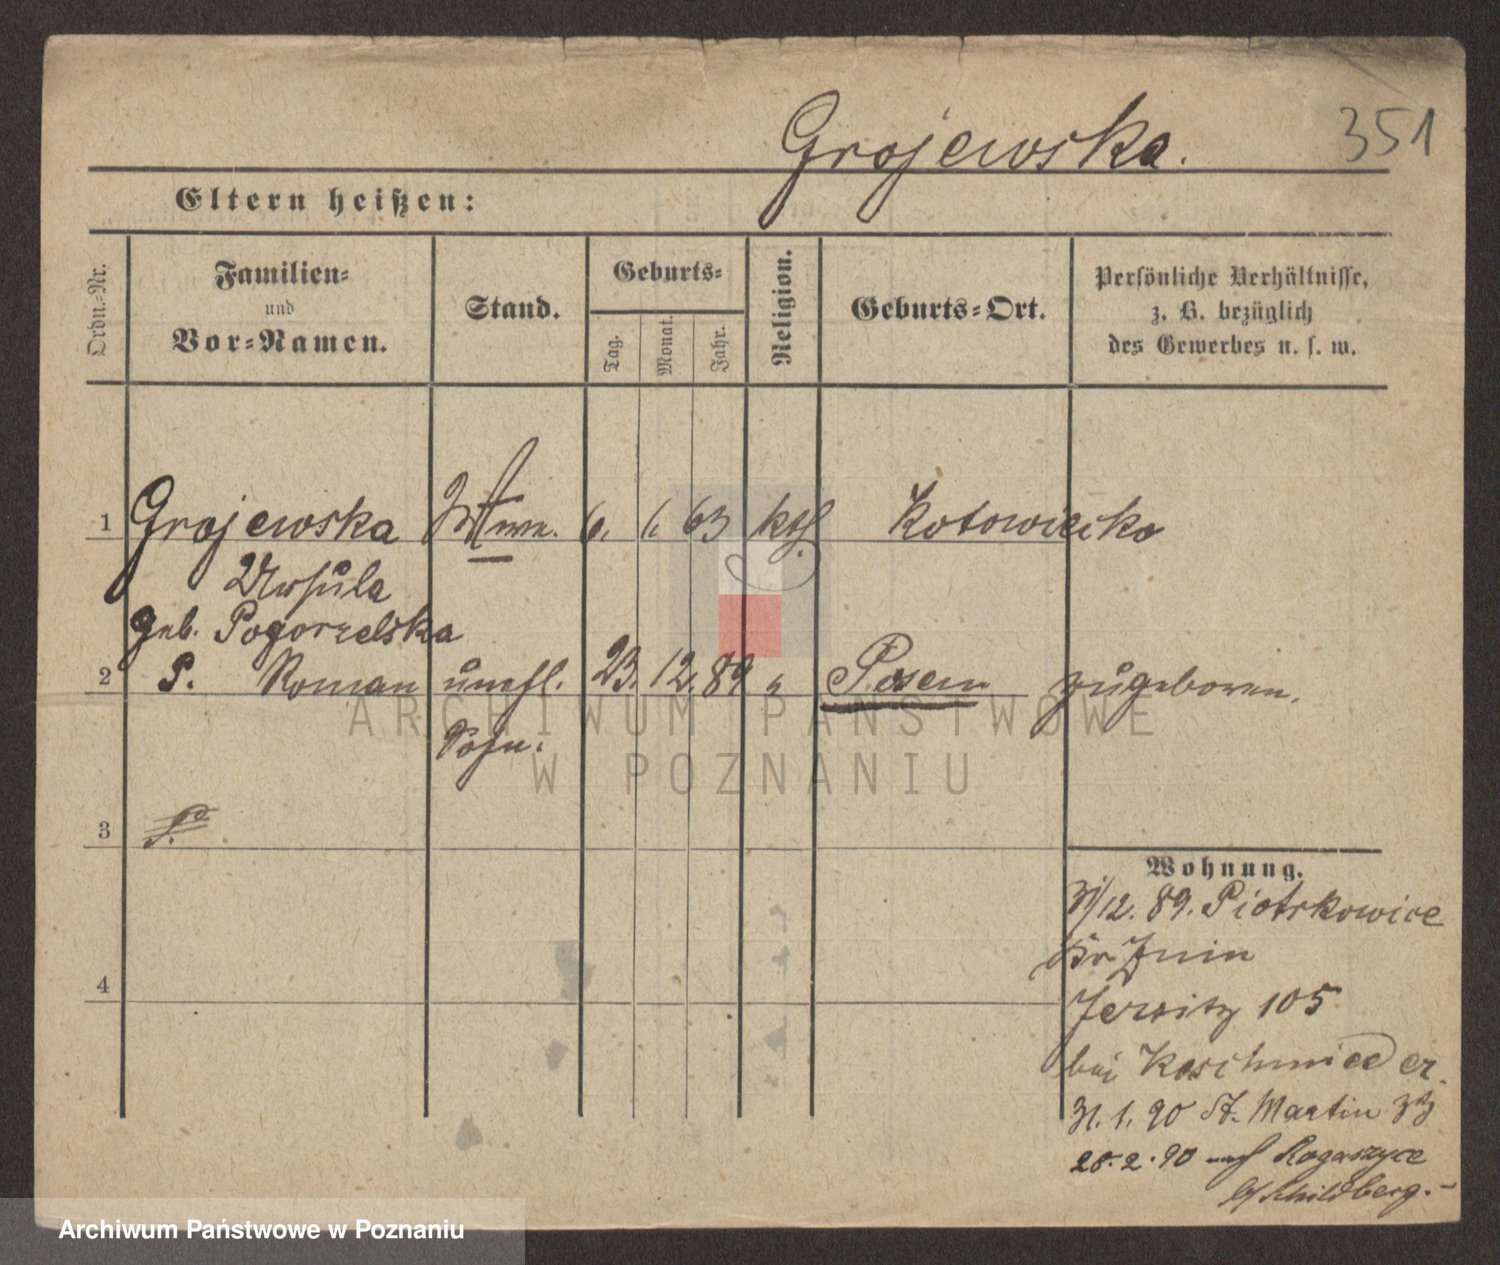 Grojewska.
351
Eltern heißen:
Ordn.-Nr.
Familien-
und
Vor-Namen.
Stand.
Geburts-
Tag.
Monat.
Jahr.
Religion.
Geburts-Ort.
Persönliche Verhältnisse,
z. B. bezüglich
des Gewerbes u. s. w.
1 Grojewska Wwe. 6. 1. 63 kth Kotowiecko
Ursula
geb. Pogorzelska
2 S. Roman unehl. 23. 12. 89 " Posen zugeboren.
Sohn.
ARCHIWUM PAŃSTWOWE
W POZNANIU
3
Wohnung.
31/12. 89. Piotrkowice
Kr Znin
4
Jersitz 105
bei Koschmieder
31. 1. 90 St. Martin 33
28. 2. 90 nach Rogaszyce
b/Schildberg.-
Archiwum Państwowe w Poznaniu